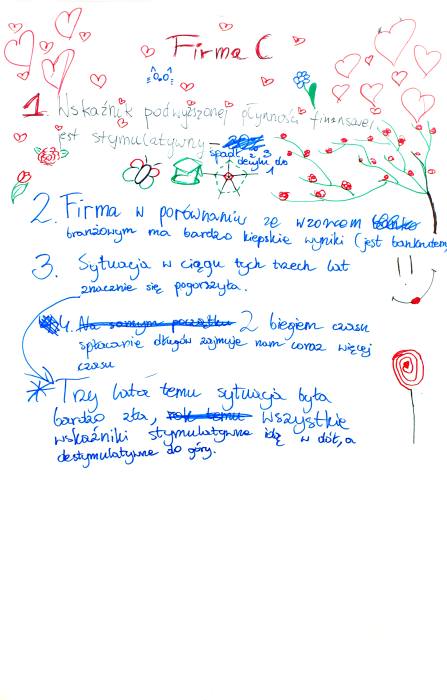 Firma C
1. Wskaźnik podwyższonej płynności finansowej
jest stymulatywny -
spadł z 3
do
1
2. Firma w porównaniu ze wzorcem
branżowym ma bardzo kiepskie wyniki (jest bankrutem)
3. Sytuacja w ciągu tych trzech lat
znacznie się pogorszyła.
4. Na samym początku Z biegiem czasu
spłacanie długów zajmuje nam coraz więcej
czasu
* Trzy lata temu sytuacja była
bardzo zła, rok temu wszystkie
wskaźniki stymulatywne idą w dół, a
destymulatywne do góry.
!!